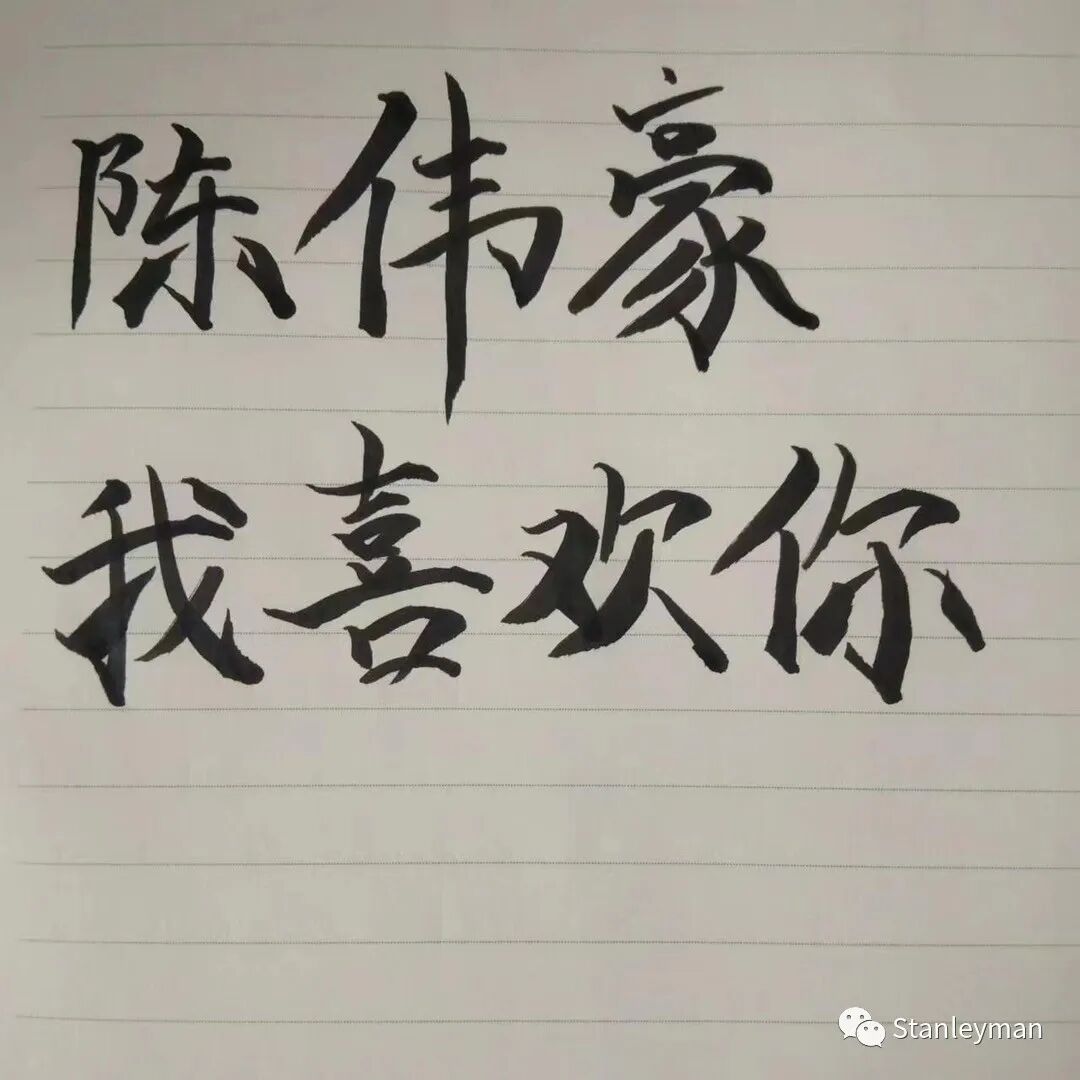 陈伟豪
我喜欢你
Stanleyman